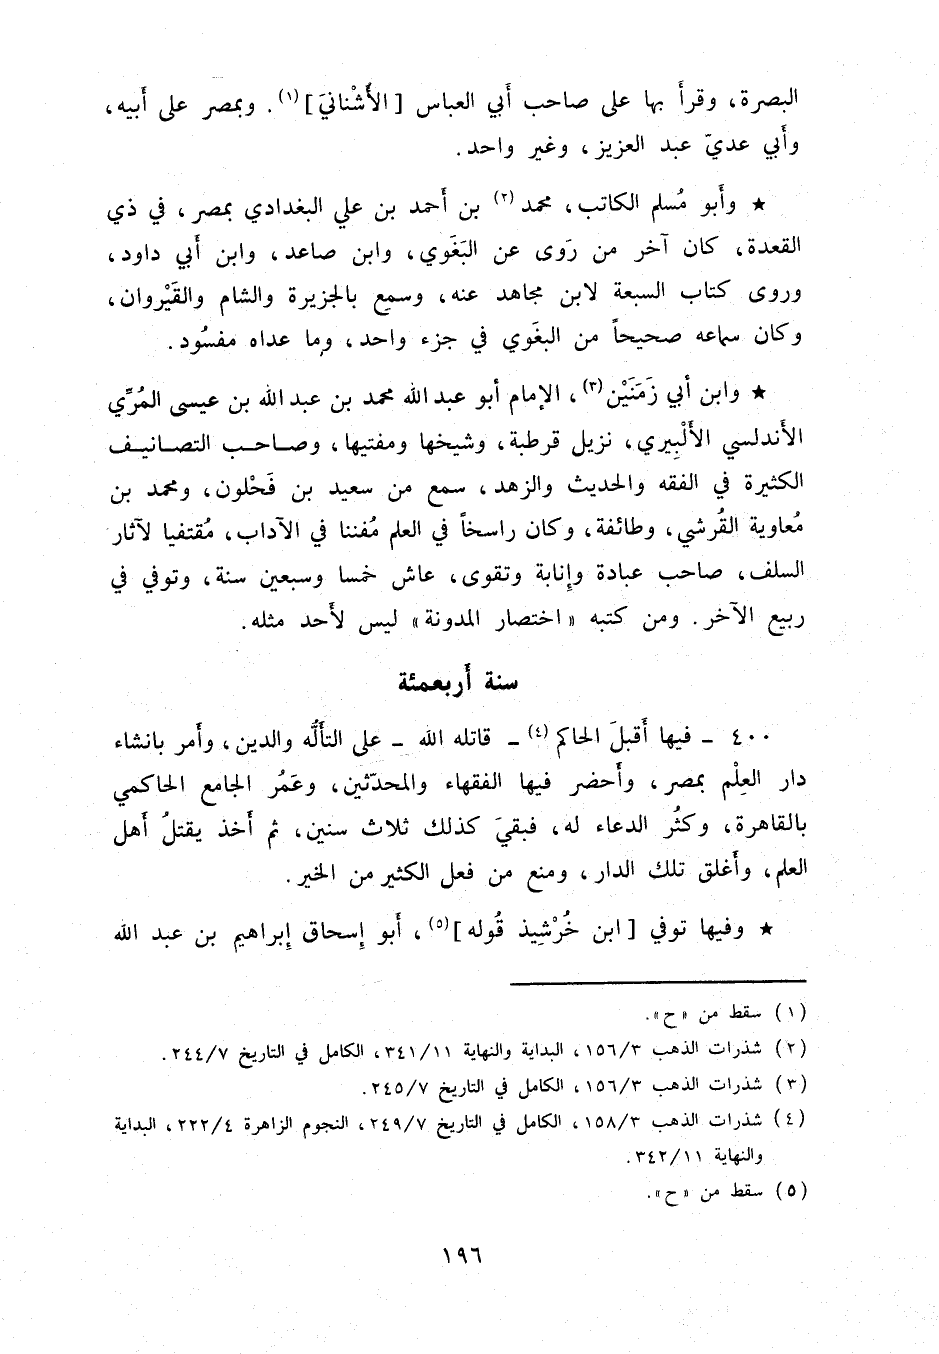 البصرة، وقرأ بها على صاحب أبي العباس [الأُشْنانيَ](١). وبمصر على أبيه،
وأبي عديّ عبد العزيز، وغير واحد.
★ وأبو مُسلم الكاتب، محمد(٢) بن أحمد بن علي البغدادي بمصر، في ذي
القعدة، كان آخر من رَوى عن البَغَوي، وابن صاعد، وابن أبي داود،
وروى كتاب السبعة لابن مجاهد عنه، وسمع بالجزيرة والشام والقَيْروان،
وكان سماعه صحيحاً من البغَوي في جزء واحد، وما عداه مفسُود.
★ وابن أبي زَمَنَيْن(٣)، الإمام أبو عبد الله محمد بن عبد الله بن عيسى المُرِّي
الأندلسي الألْبِيري، نزيل قرطبة، وشيخها ومفتيها، وصاحب التصانيف
الكثيرة في الفقه والحديث والزهد، سمع من سعيد بن فَحْلون، ومحمد بن
مُعاوية القُرشي، وطائفة، وكان راسخاً في العلم مُفننا في الآداب، مُقتفيا لآثار
السلف، صاحب عبادة وإنابة وتقوى، عاش خمسا وسبعين سنة، وتوفي في
ربيع الآخر. ومن كتبه «اختصار المدونة» ليس لأحد مثله.
سنة أربعمئة
٤٠٠ ـ فيها أقبلَ الحاكم(٤) ـ قاتله الله ـ على التألُّه والدين، وأمر بانشاء
دار العِلْم بمصر، وأحضر فيها الفقهاء والمحدّثين، وعَمُر الجامع الحاكمي
بالقاهرة، وكثُر الدعاء له، فبقيَ كذلك ثلاث سنين، ثم أخذ يقتلُ أهل
العلم، وأغلق تلك الدار، ومنع من فعل الكثير من الخير.
★ وفيها توفي [ابن خُرْشِيذ قُوله](٥)، أبو إسحاق إبراهيم بن عبد الله
(١) سقط من «ح».
(٢) شذرات الذهب ١٥٦/٣، البداية والنهاية ٣٤١/١١، الكامل في التاريخ ٢٤٤/٧.
(٣) شذرات الذهب ١٥٦/٣، الكامل في التاريخ ٢٤٥/٧.
(٤) شذرات الذهب ١٥٨/٣، الكامل في التاريخ ٢٤٩/٧، النجوم الزاهرة ٢٢٢/٤، البداية
والنهاية ٣٤٢/١١.
(٥) سقط من «ح».
١٩٦